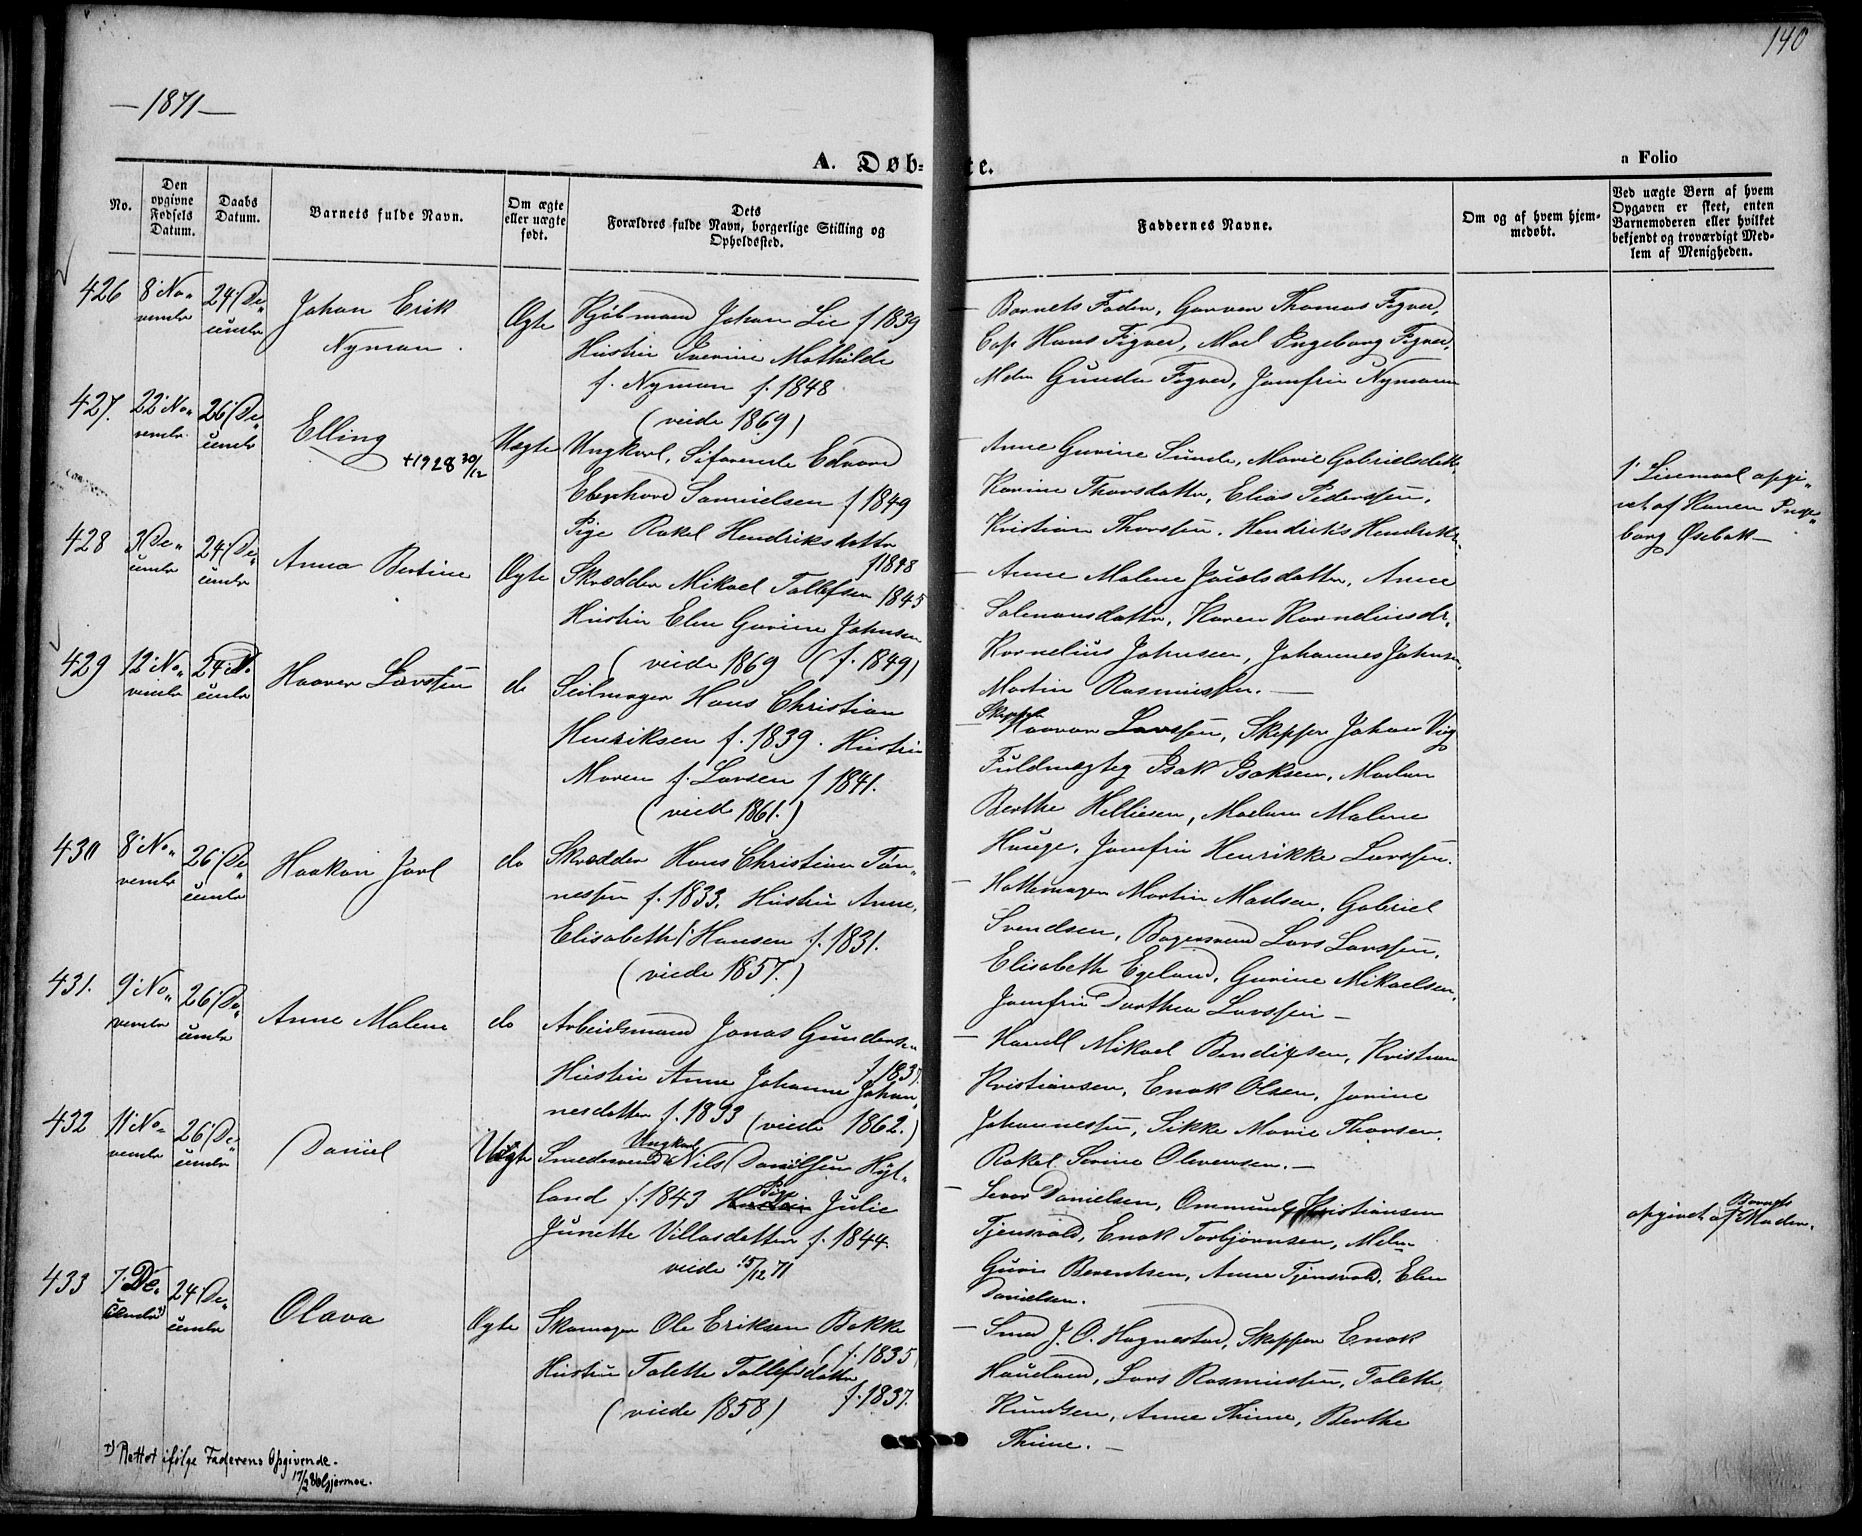 140
— 1871 —
A. Døb= te.
a Folio
No.
Den opgivne Fødsels Datum.
Daabs Datum.
Barnets fulde Navn.
Om ægte eller uægte født.
Dets
Forældres fulde Navn, borgerlige Stilling og Opholdssted.
Faddernes Navne.
Om og af hvem hjemmedøbt.
Ved uægte Børn af hvem Opgaven er skeet, enten Barnemoderen eller hvilket bekjendt og troværdigt Medlem af Menigheden.
426
8' No„
vembr
24' De„
cembr
Johan Erik
Nyman.
Ægte
Kjøbmand Johan Lie f 1839
Hustru Severine Mathilde
f. Nyman f. 1848
(viede 1869)
— Barnets Fader, Garver Thomas Figved,
Cap Hans Figved, Mad Ingeborg Figved,
Mdm Gunda Figved, Jomfru Nyman
427.
22' No„
vembr.
26' De„
cembr
Elling
+1928 30/12
Uægte
Ungkarl, Søfarende Edvard
Eberhard Samuelsen f 1849
Pige Rakel Hendriksdatter
f 1848
— Anne Gurine Sunde, Marie Gabrielsdatt.
Karine Thorsdatter, Elias Pedersen,
Kristian Thorsen. Hendrik Hendriks.
1' Leiermaal opgi„
vet af Konen Inge„
borg Øsebak —
428
3' De„
cembr
24' De„
cembr
Anna Bertine
Ægte
Skrædder Mikael Tollefsen 1845
Hustru Elen Gurine Johnsen
(viede 1869 (f. 1849)
— Anne Malene Jacobsdatter, Anne
Salomonsdatter, Karen Kornelius dr,
Kornelius Johnsen, Johannes Johns.
Martin Rasmussen. —
429
12' No„
vembr
24' D.
cembr
Haaver Larssen
do
Seilmager Hans Christian
Henriksen f. 1839. Hustru
Maren f. Larsen f 1841.
(viede 1861.)
— Skipper
Haaver Larssen, Skipper Johan Vig
Fuldmægtig Isak Isaksen, Madam
Berthe Helliesen, Madam Malene
Hauge, Jomfru Henrikke Larssen.
430
8' No„
vembr
26' De
cembr
Haakon Jarl
do
Skrædder Hans Christian Tøn„
nessen f. 1833. Hustru Anne,
Elisabeth f. Hansen f. 1831.
(viede 1857.)
— Hattemager Martin Madsen, Gabriel
Svendsen, Bagersvend Lars Larssen,
Elisabeth Egeland, Gurine Mikaelsen,
Jomfru Dorthea Larssen —
431.
9' No„
vembr
26' De„
cembr
Anne Malene
do
Arbeidsmand Jonas Gunders„
f 1837.
Hustru Anne Johanne Johan„
nesdatter f. 1833 (viede 1862.)
— Handl Mikael Bendixsen, Kristian
Kristiansen, Enok Olsen, Jorine
Johannessen, Sikke Marie Thorsen.
Rakel Serine Olevensen. —
432
11' No„
vembr
26' De„
cembr
Daniel
Uægte
Ungkarl
Smedesvend Nils Danielsen Høl„
land f. 1843 Pige Julie
Junette Villasdatter f. 1844.
viede 15/12 71
— Sever Danielsen, Ommund Kristiansen
Tjensvold, Enok Torbjørnsen, Mdm
Guri Berentsen, Anne Tjensvold, Elen
Danielsen.
opgivet af Barnets
Moder.
433
7. De„
cembr 1)
24' De„
cembr
Olava
Ægte
Skomager Ole Eriksen Bakke
(f. 1835
Hustru Talette Tollefsdatter
f. 1837.
(viede 1858)
— Smed J. O. Hognestad, Skipper Enok
Haueland, Lars Rasmussen, Talette
Knudsen, Anne Thime, Berthe
Thime. —
1) Rettet ifølge Faderens Opgivende.
17/2 86 Gjermoe.